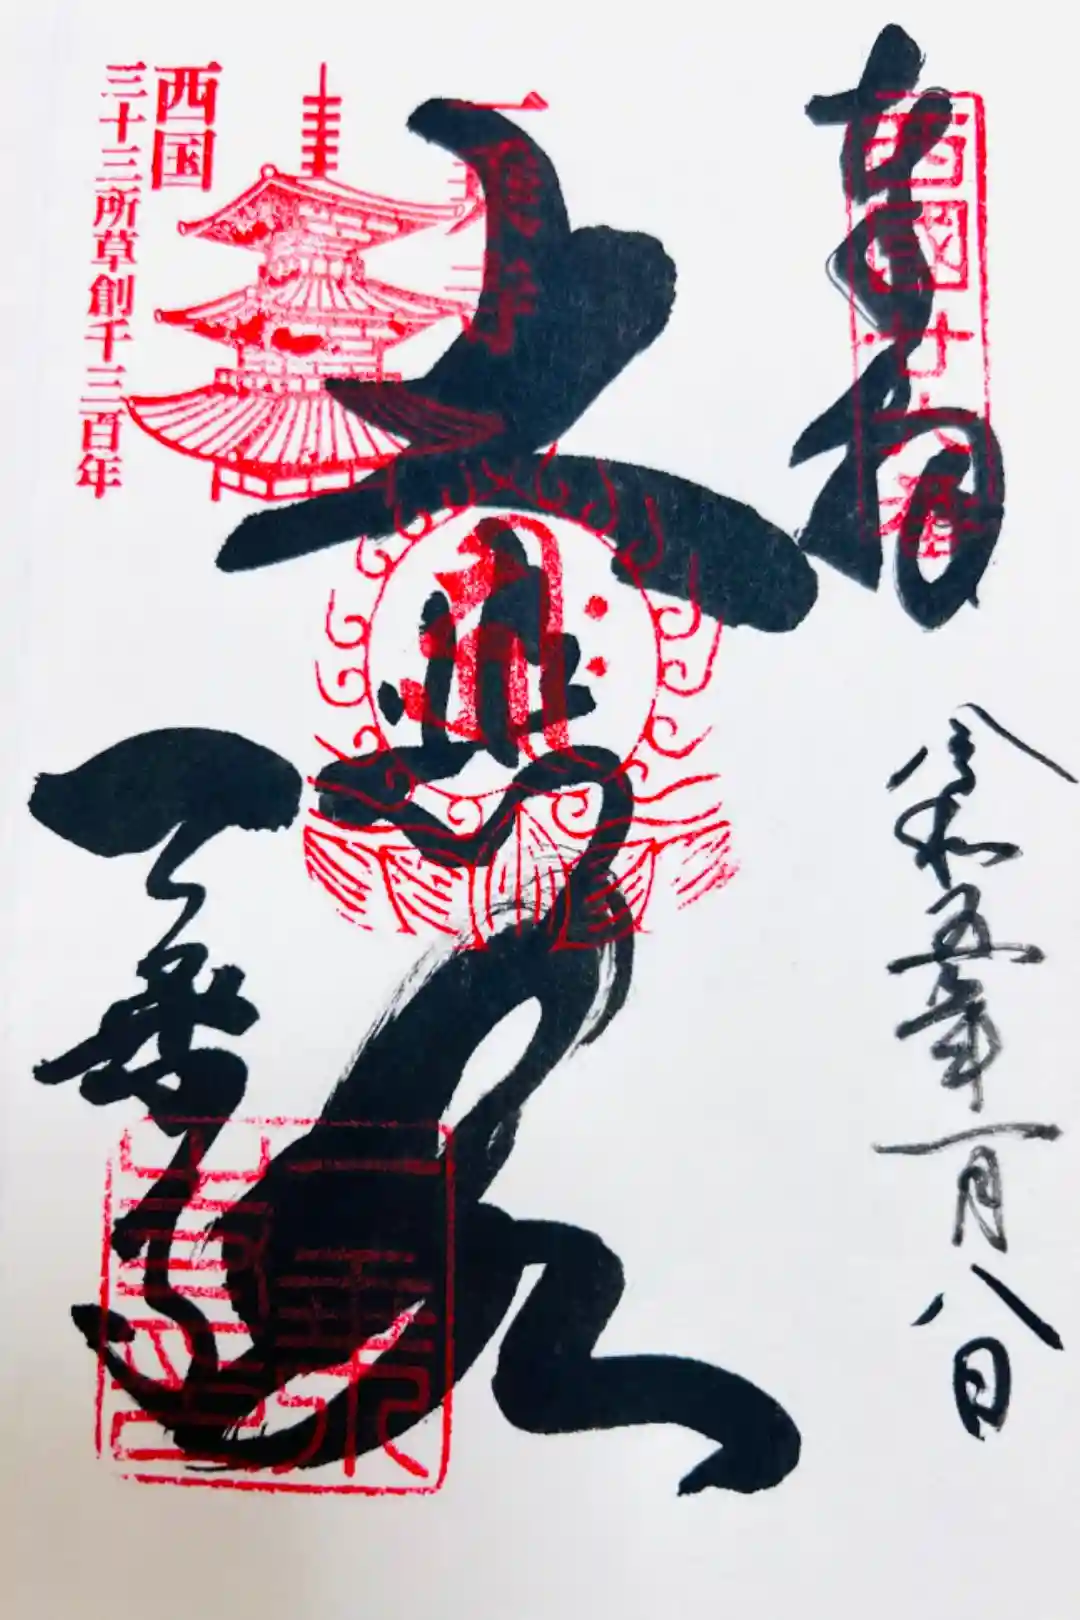 奉拝
西國廿六番
令和五年一月八日
大悲殿
一乗寺
西国
三十三所草創千三百年